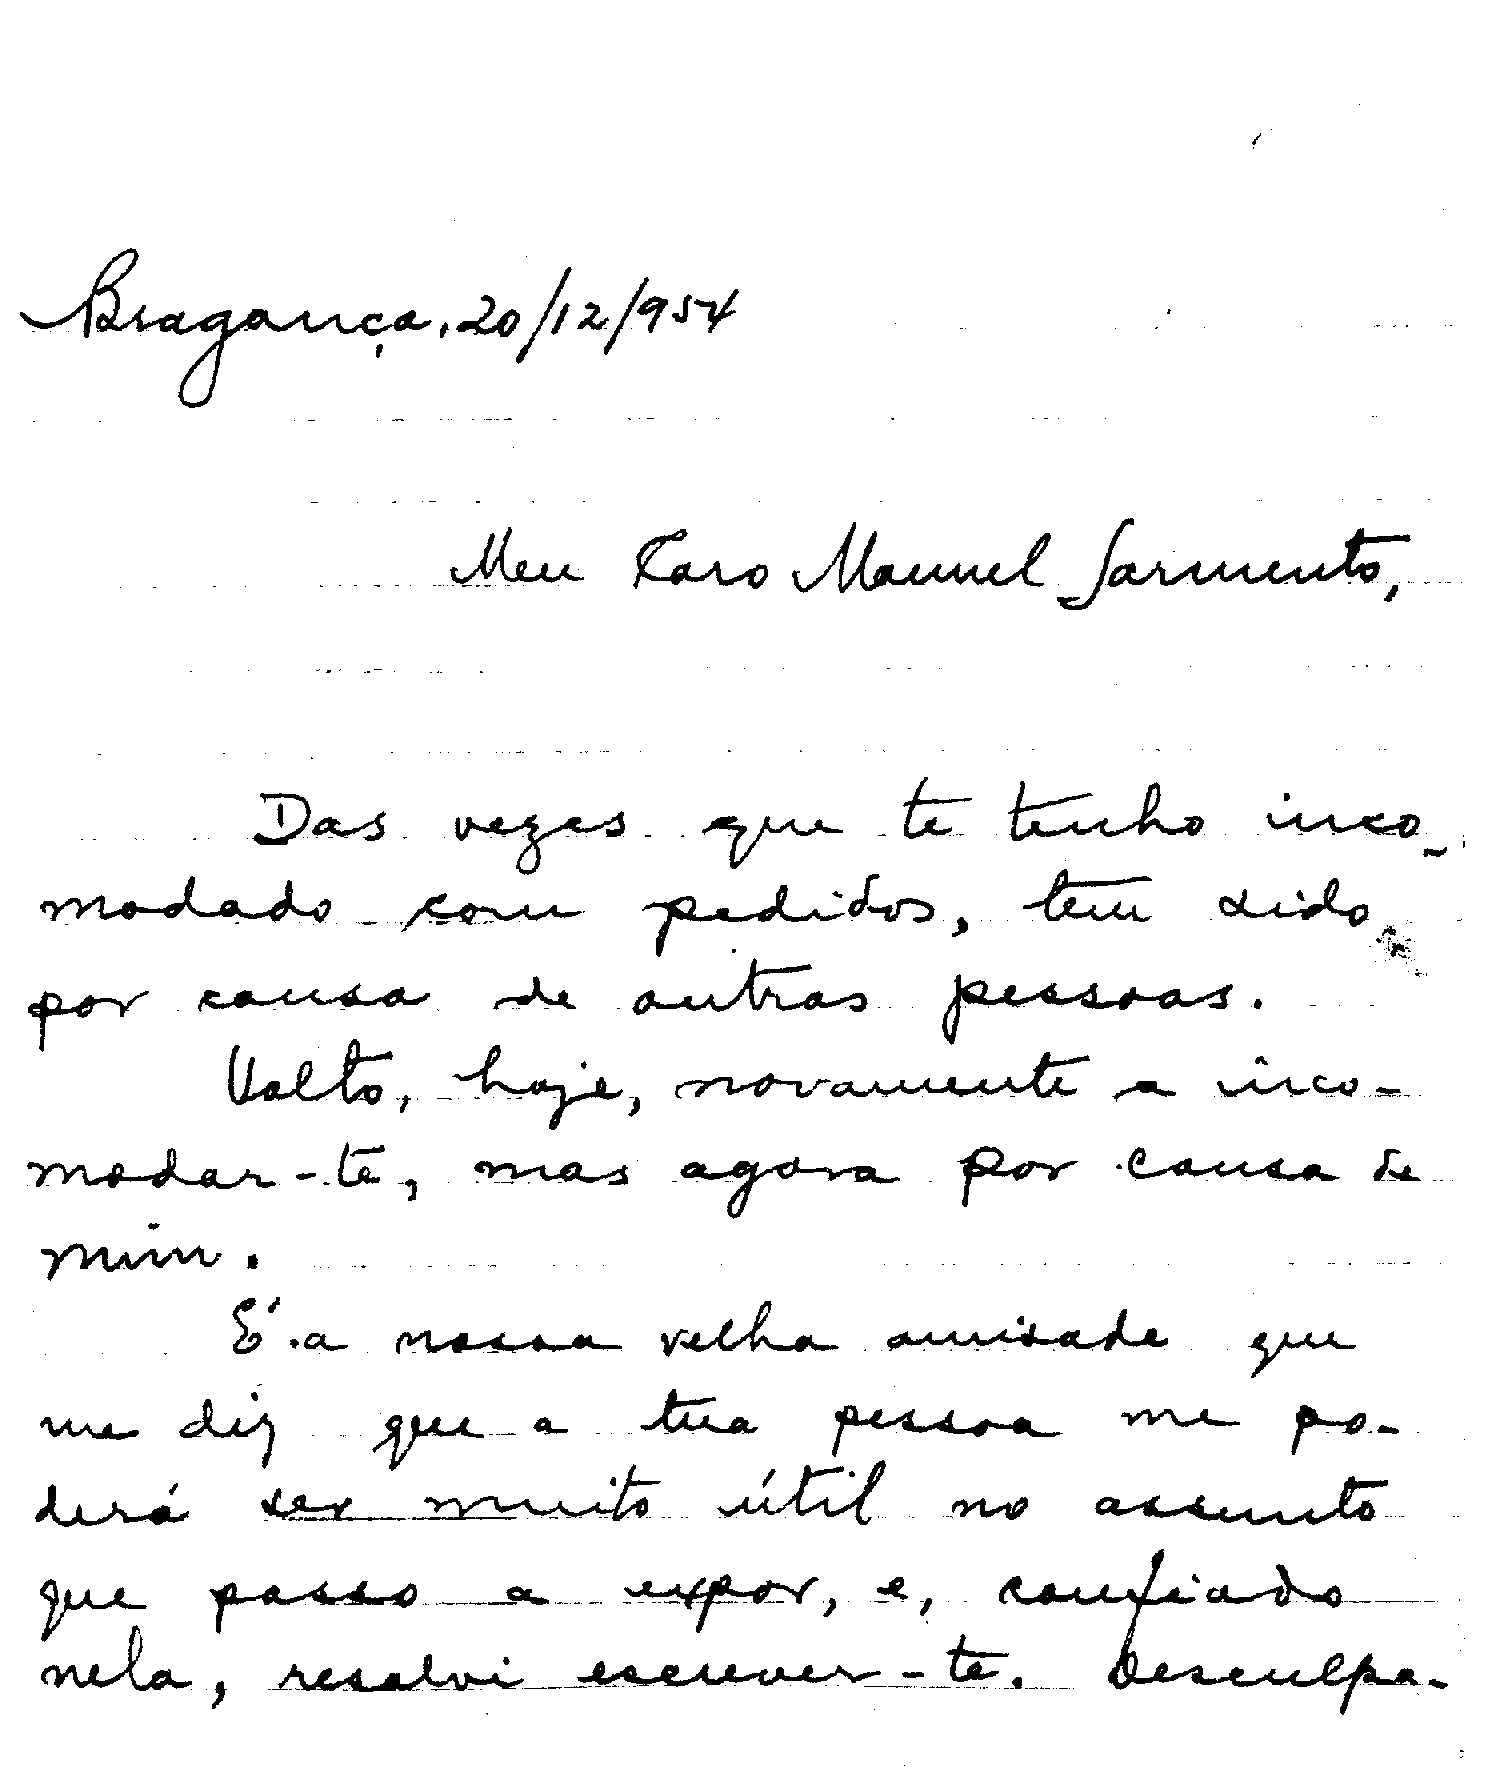 Bragança, 20/12/954
Meu Caro Manuel Sarmento,
Das vezes que te tenho inco-
modado com pedidos, tem sido
por causa de outras pessoas.
Volto, hoje, novamente a inco-
modar-te, mas agora por causa de
mim.
É a nossa velha amisade que
me diz que a tua pessoa me po-
derá ser muito útil no assunto
que passo a expor, e, confiado
nela, resolvi escrever-te. Desculpa-